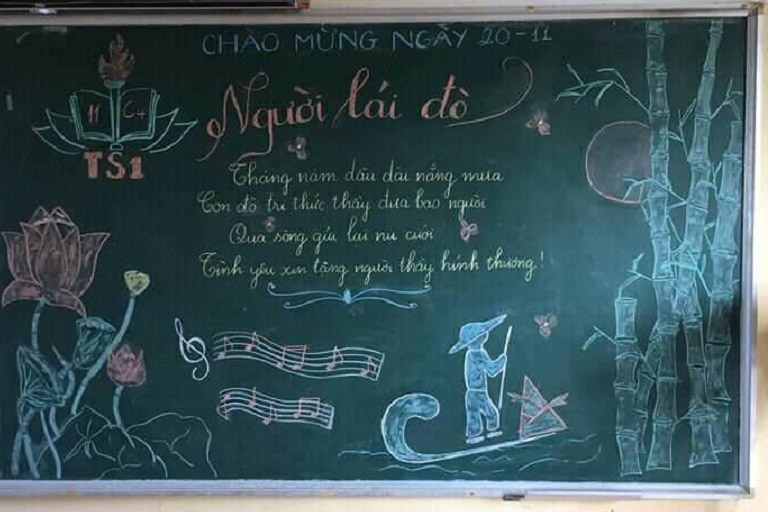 CHÀO MỪNG NGÀY 20-11
11 C4
TS1
Người lái đò
Tháng năm dầu dãi nắng mưa
Con đò tri thức thầy đưa bao người
Qua sông gửi lại nụ cười
Tình yêu xin tặng người thầy kính thương!